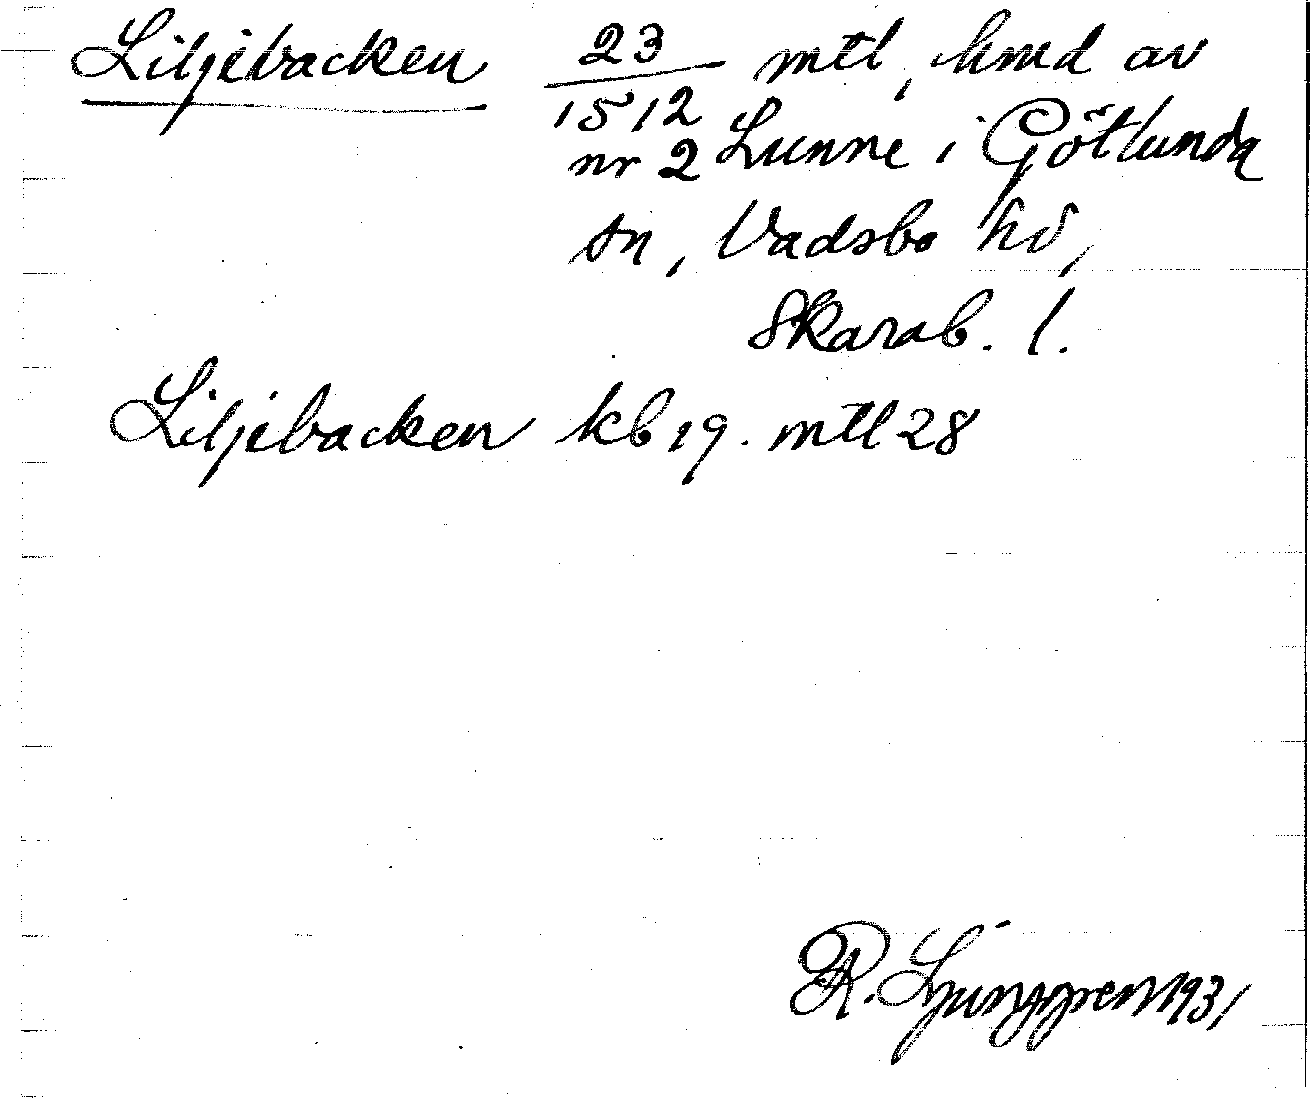 Liljebacken 23/1512 mtl, hmd av
nr 2 Lunne i Götlunda
sn, Vadsbo hd,
Skarab. l.
Liljebacken kb 19. mtl 28
R. Ljunggren 1931